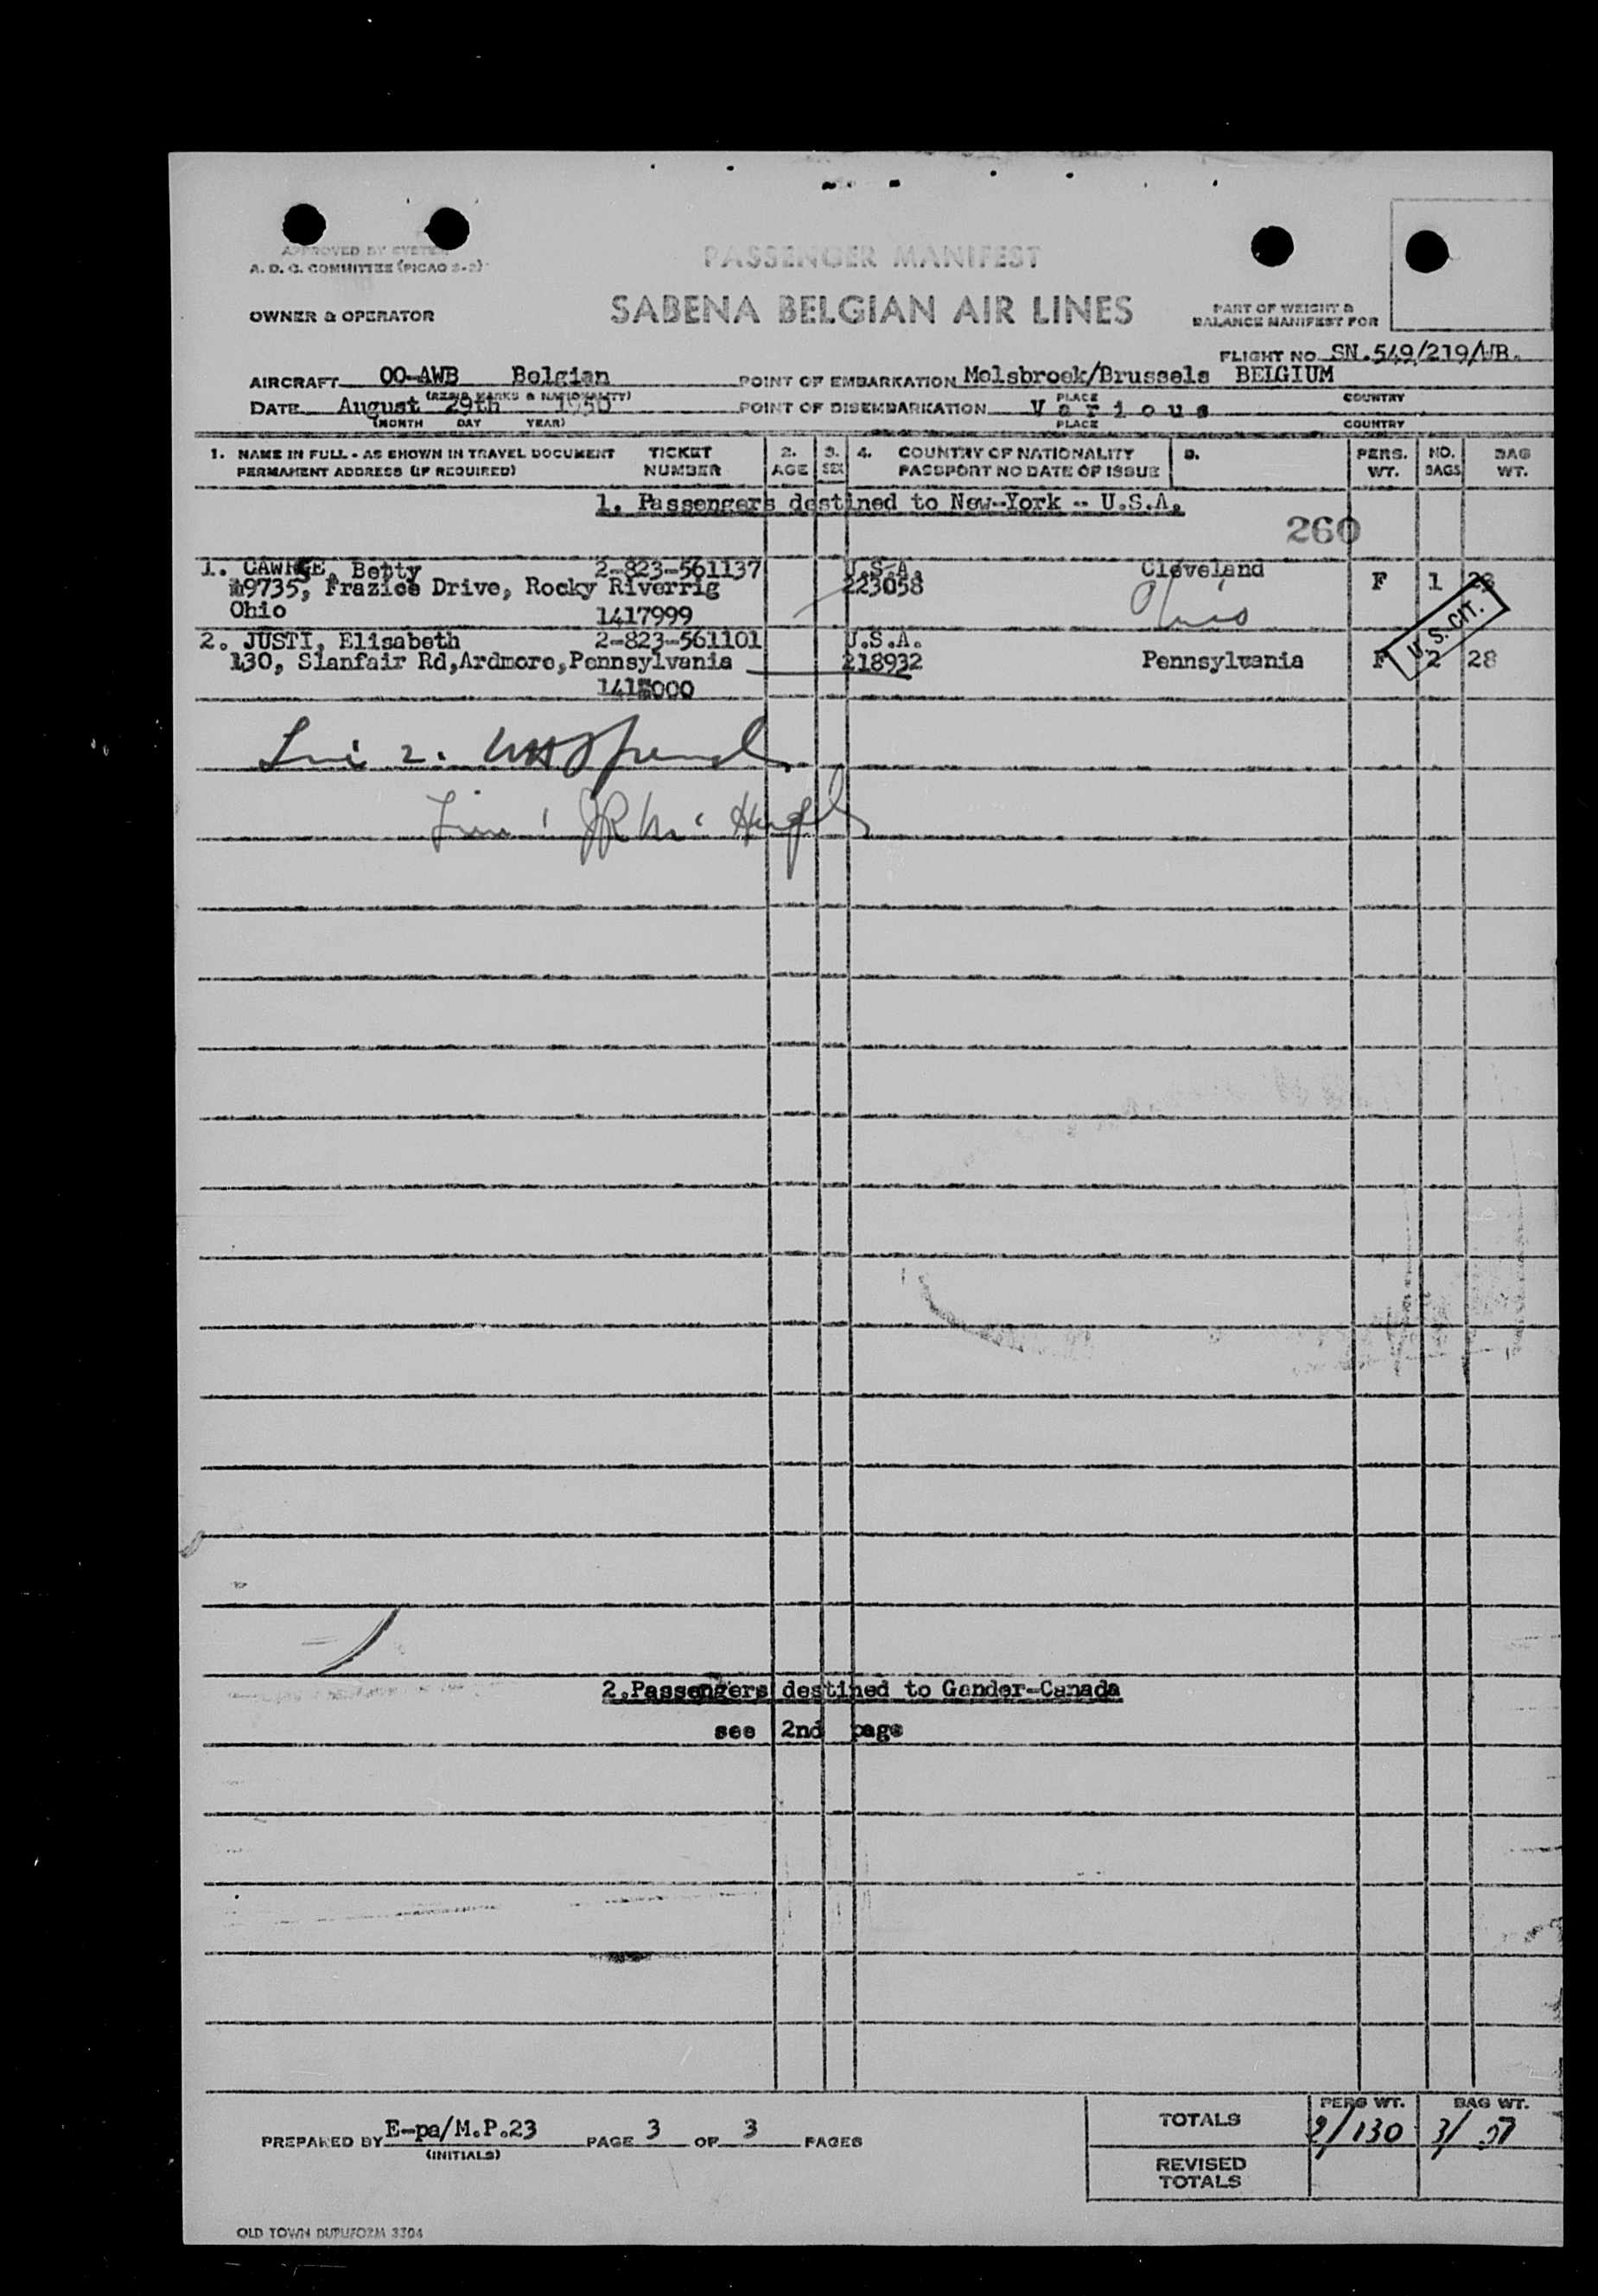 APPROVED BY SYSTEM
A. D. C. COMMITTEE (PICAO S-2)
PASSENGER MANIFEST
OWNER & OPERATOR
SABENA BELGIAN AIR LINES
PART OF WEIGHT &
BALANCE MANIFEST FOR
FLIGHT NO SN.549/219/UB.
AIRCRAFT OO-AWB Belgian POINT OF EMBARKATION Melsbroek/Brussels BELGIUM
(REG'D MARKS & NATIONALITY) PLACE COUNTRY
DATE August 29th 1950 POINT OF DISEMBARKATION V a r i o u s
(MONTH DAY YEAR) PLACE COUNTRY
1. NAME IN FULL - AS SHOWN IN TRAVEL DOCUMENT TICKET 2. 3. 4. COUNTRY OF NATIONALITY 5. PERS. NO. BAG
PERMANENT ADDRESS (IF REQUIRED) NUMBER AGE SEX PASSPORT NO DATE OF ISSUE WT. BAGS WT.
1. Passengers destined to New-York -- U.S.A.
260
1. Betty 2-823-561137 U.S.A. Cleveland F 1
19735, Frazice Drive, Rocky Riverrig 223058 Ohio
Ohio 1417999
2. JUSTI, Elisabeth 2-823-561101 U.S.A.
130, Slanfair Rd,Ardmore,Pennsylvania 218932 Pennsylvania F 2 28
U. S. CIT.
2.Passengers destined to Gander-Canada
see 2nd page
PREPARED BY E-pa/M.P.23 PAGE 3 OF 3 PAGES
(INITIALS)
TOTALS PERS WT. BAG WT.
2/130 3/
REVISED
TOTALS
OLD TOWN DUPLIFORM 3304